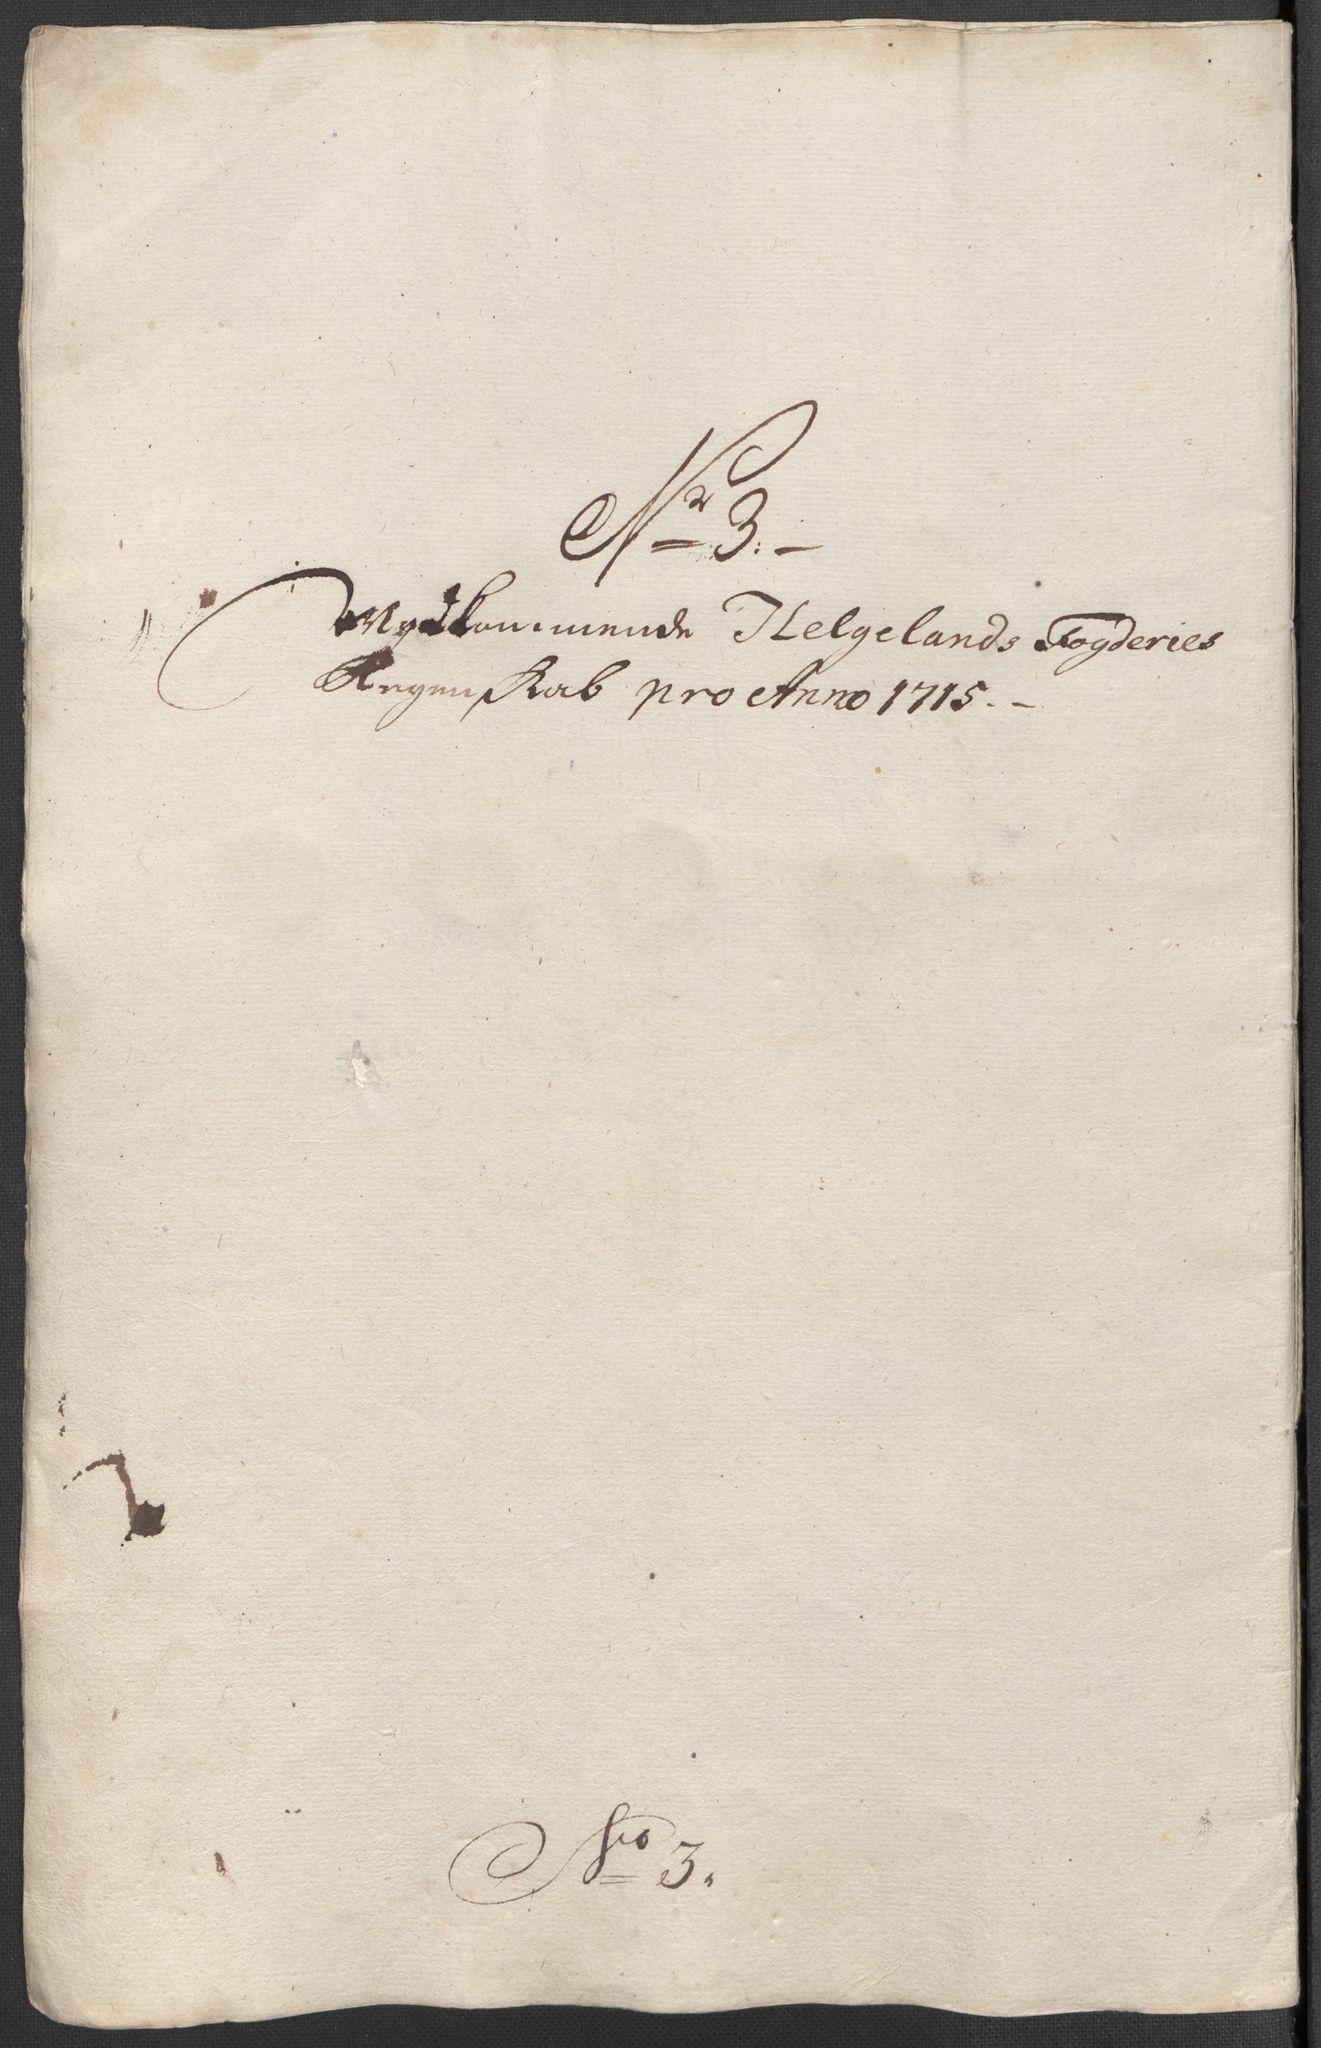 Nr 3.
Vedkommende Helgelands Fogderies
Regenskab pro Anno 1715.
No 3.